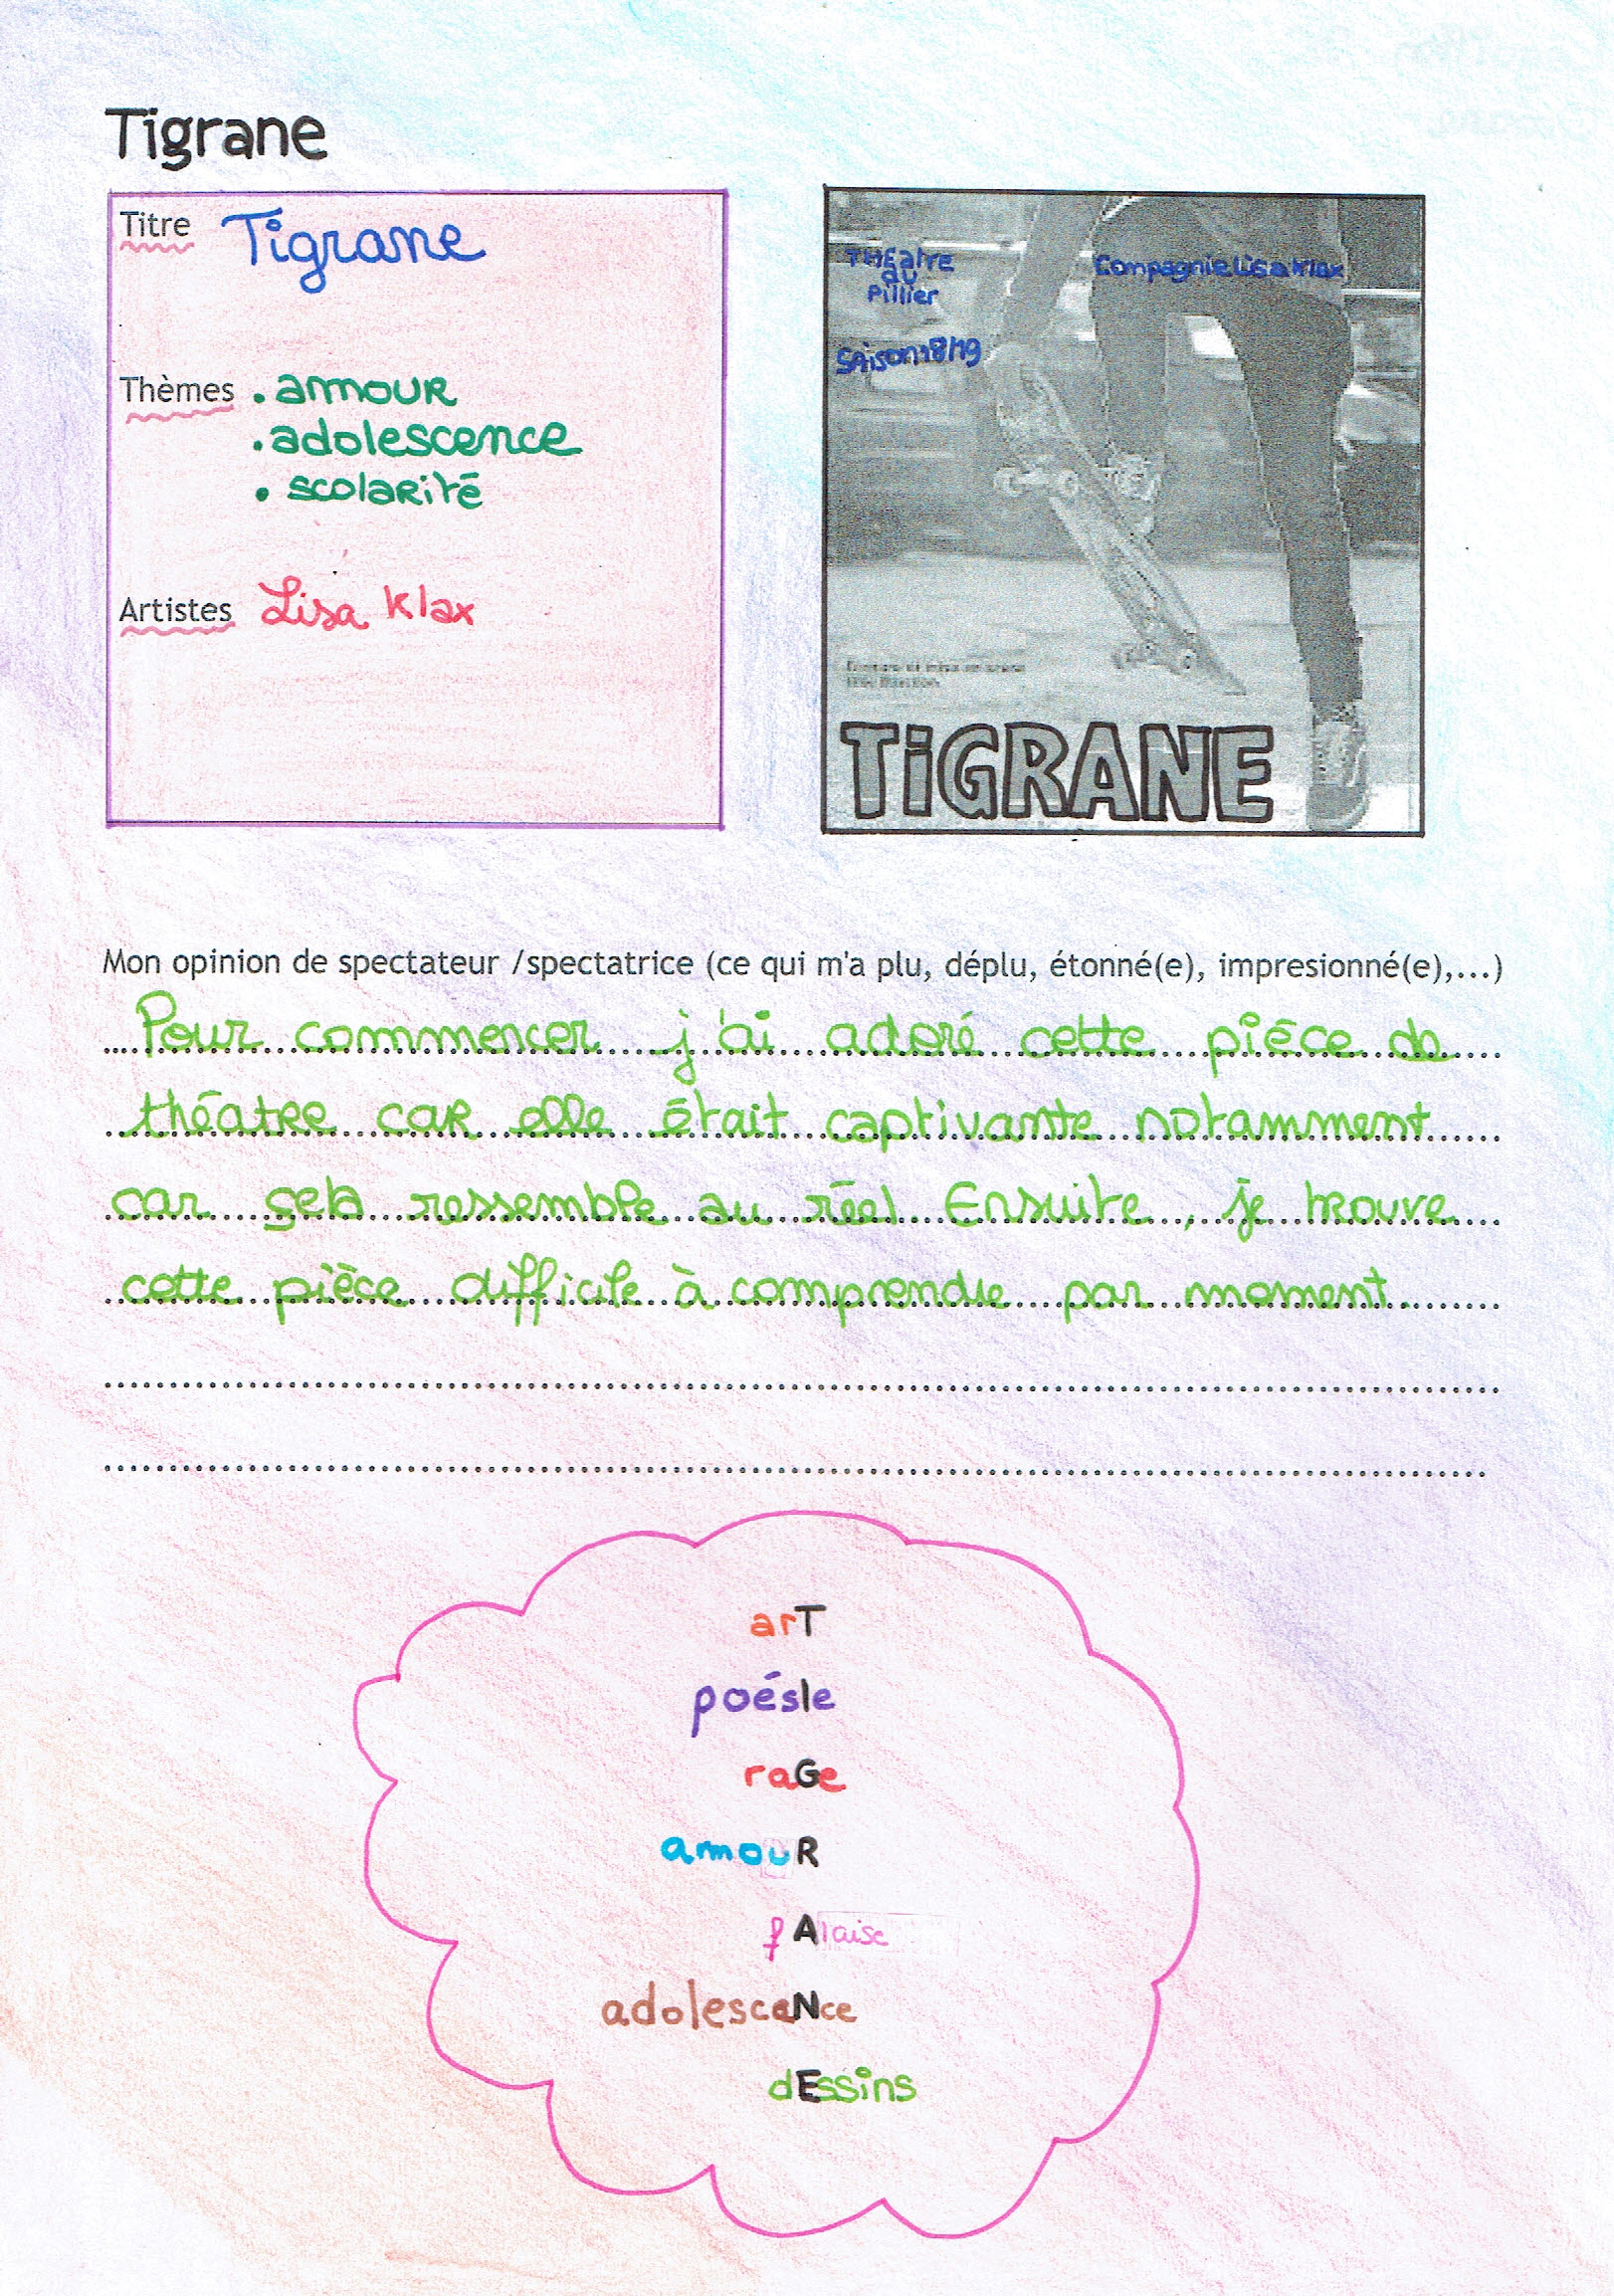 Tigrane
Titre Tigrane
Thèmes . amour
. adolescence
. scolarité
Artistes Lisa Klax
THEatre
au
Pillier
Compagnie Lisa Klax
Saison 18/19
TiGRANE
Mon opinion de spectateur /spectatrice (ce qui m'a plu, déplu, étonné(e), impresionné(e),...)
Pour commencer j'ai adoré cette pièce de
théatre car elle était captivante notamment
car sela ressemble au réel. Ensuite, je trouve
cette pièce difficile à comprendre par moment.
arT
poésIe
raGe
amouR
fAlaise
adolesceNce
dEssins